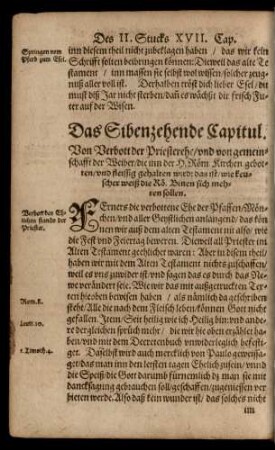 Des II. Stucks XVII. Cap.
Springen vom
Pferd zum Esel.
inn disem theil nicht zubeklagen haben / das wir kein
Schrifft solten beibringen können: Dieweil das alte Te-
stament / inn massen sie selbst wol wissen / solcher zeug-
nuß aller voll ist. Derhalben tröst dich lieber Esel / du
must doß Jar nicht sterben / dañ es wächßt dir frisch Fu-
ter auf der Wisen.
Das Sibenzehende Capitul.
Von Verbott der Priesterehe / vnd von gemein-
schafft der Weiber / die inn der H. Röm Kirchen gebot-
ten / vnd fleissig gehalten würd: das ist / wie keu-
scher weiß die Rö. Binen sich meh-
ren sollen.
Verbott des Eh-
lichen stands der
Priester.
FErners die verbottene Ehe der Pfaffen / Mön-
chen / vnd aller Geystlichen anlangend / das kön-
nen wir auß dem alten Testament nit also / wie
die Fest vnd Feiertag beweren. Dieweil all Priester im
Alten Testament geehlicht waren: Aber in disem theil /
haben wir mit dem Alten Testament nichts zuschaffen /
weil es vns zuwider ist / vnd das fugen auch durch das Ne-
we verändert seie. Wie wir das mit außgeruckten Ter-
ten hieoben bewisen haben / als nämlich da geschriben
Rom. 8.
steht / Alle die nach dem Fleisch leben / können Gott nicht
gefallen. Item / Seit heilig wie ich Heilig bin: vnd ande-
Leuit 20.
re dergleichen sprüch mehr / die wir hie oben erzälet ha-
ben / vnd mit dem Decretenbuch vnwiderleglich befesti-
1. Timoth. 4.
get. Daselbst ward auch mercklich von Paulo geweissa-
get / das man inn den letsten tagen Ehelich zusein / vnd
die Speiß / die Gott darumb fürnemlich dz man sie mit
dancksagung gebrauchen soll / geschaffen / zugeniessen ver
bieten werde. Also daß kein wunder ist / das solches nicht